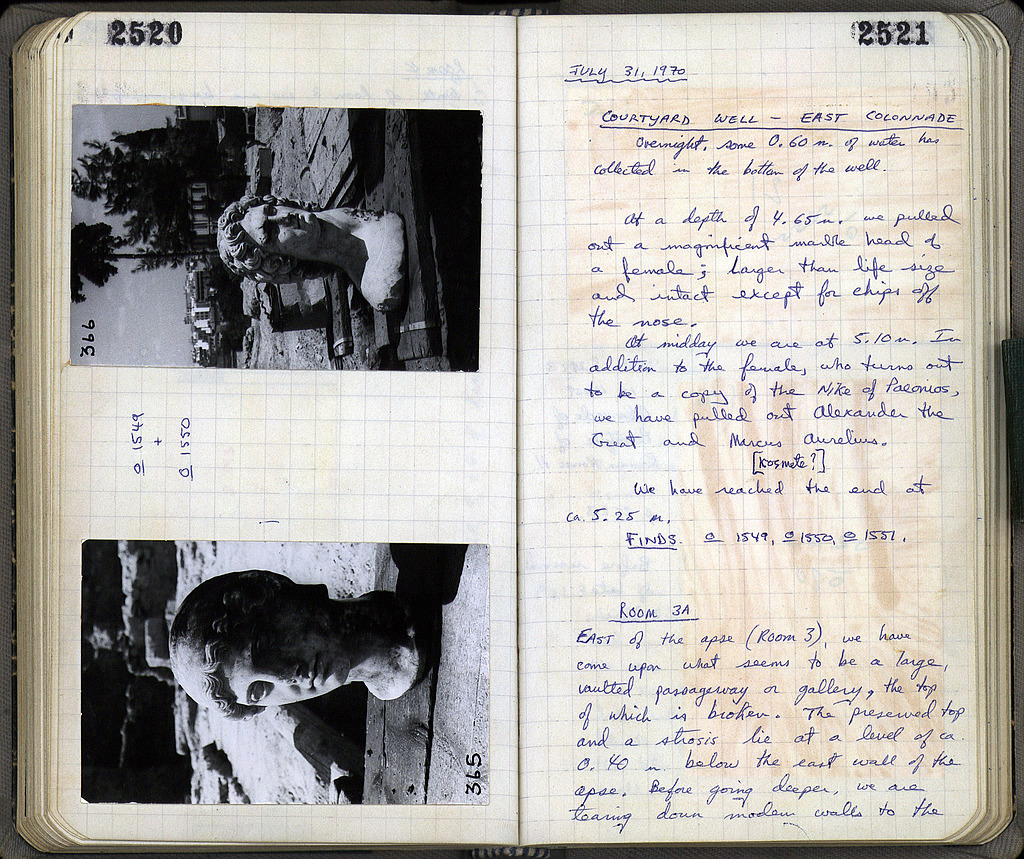 2520
366
O 1549
+
O 1550
365
2521
JULY 31, 1970
COURTYARD WELL - EAST COLONNADE
Overnight, some 0.60 m. of water has
collected in the bottom of the well.
At a depth of 4.65 m. we pulled
out a magnificent marble head of
a female; larger than life size
and intact except for chips off
the nose.
At midday we are at 5.10 m. In
addition to the female, who turns out
to be a copy of the Nike of Paeonios,
we have pulled out Alexander the
Great and Marcus Aurelius.
[Kosmete?]
We have reached the end at
ca. 5.25 m.
FINDS. O 1549, O 1550, O 1551.
ROOM 3A
EAST of the apse (Room 3), we have
come upon what seems to be a large,
vaulted passageway or gallery, the top
of which is broken. The preserved top
and a strosis lie at a level of ca.
0.40 m below the east wall of the
apse. Before going deeper, we are
tearing down modern walls to the